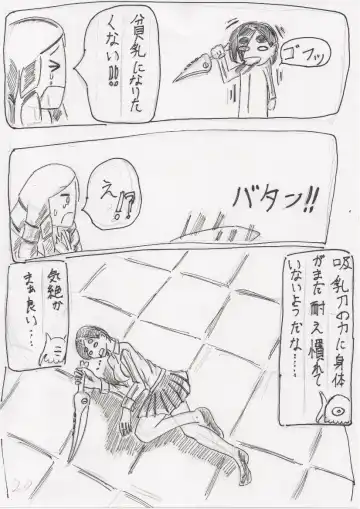 ゴフッ
貧乳になりた
くない!!!
バタン!!
え!?
吸乳刀の力に身体
がまだ耐え慣れて
いないようだな……
気絶か
まぁ良い…